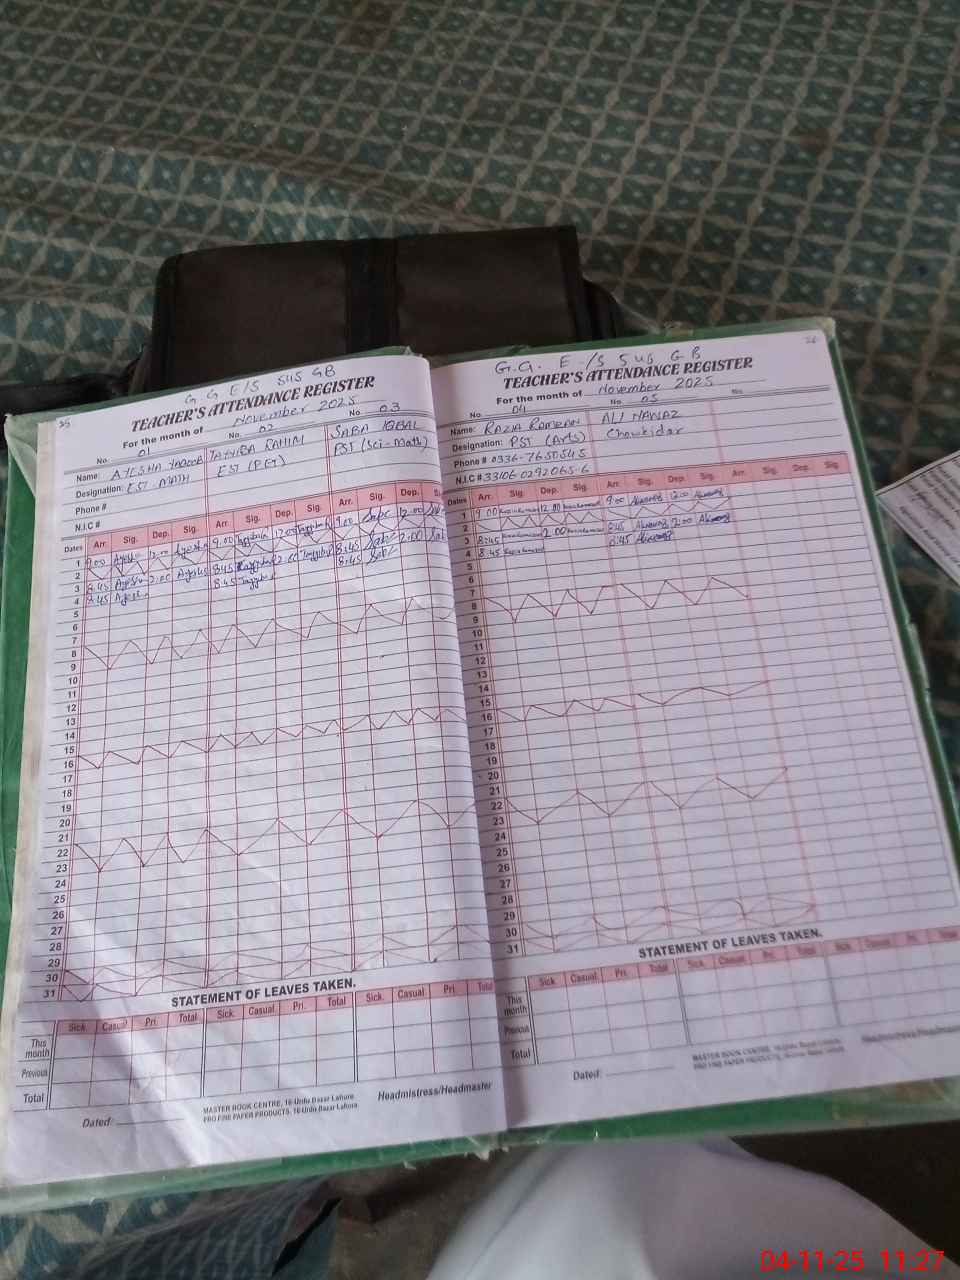 35
G G E/S SUS GB
TEACHER'S ATTENDANCE REGISTER
For the month of November 2025
No. 01 No. 02 No. 03
Name: AYESHA YAQOOB TAYYIBA RAHIM SABA IQBAL
Designation: EST-MATH EST (PET) PST (Sci-Math)
Phone #
N.I.C #
Dates Arr. Sig. Dep. Sig. Arr. Sig. Dep. Sig. Arr. Sig. Dep.
1 9.00 Ayesha 12.00 Ayesha 9.00 Tayyiba 12.00 Tayyiba 9.00 Saba 12.00
2
3 8:45 Ayesha 2:00 Ayesha 8:45 Tayyiba 2:00 Tayyiba 8:45 2:00
4 8:45 Ayesha 8:45 Tayyiba 8:45
5
6
7
8
9
10
11
12
13
14
15
16
17
18
19
20
21
22
23
24
25
26
27
28
29
30
31
STATEMENT OF LEAVES TAKEN.
Sick. Casual Pri. Total Sick. Casual Pri. Total Sick. Casual Pri. Total
This month
Previous
Total
Dated:
MASTER BOOK CENTRE, 16-Urdu Bazar Lahore
PRO FINE PAPER PRODUCTS, 16-Urdu Bazar Lahore.
Headmistress/Headmaster
26
G.G. E/S SUS GB
TEACHER'S ATTENDANCE REGISTER
For the month of November 2025
No. 04 No. 05 No.
Name: RAZIA RAMZAN ALI NAWAZ
Designation: PST (Arts) Chowkidar
Phone # 0336-7650545
N.I.C # 33106 0292065-6
Dates Arr. Sig. Dep. Sig. Arr. Sig. Dep. Sig. Arr. Sig. Dep. Sig.
1 9 00 12.00 9:00 12:00
2
3 8:45 2.00 8:45 2:00
4 8:45 8:45
5
6
7
8
9
10
11
12
13
14
15
16
17
18
19
20
21
22
23
24
25
26
27
28
29
30
31
STATEMENT OF LEAVES TAKEN.
Sick. Casual Pri. Total Sick. Casual Pri. Total Sick. Casual Pri. Total
This month
Previous
Total
Dated:
MASTER BOOK CENTRE, 16-Urdu Bazar Lahore
PRO FINE PAPER PRODUCTS, 16-Urdu Bazar Lahore
Headmistress/Headmaster
04-11-25 11:27